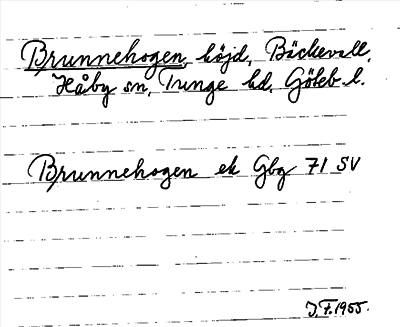 Brunnehogen, höjd, Bäckevall,
Håby sn, Tunge hd, Göteb. l.
Brunnehogen ek Gbg 71 SV
J.F. 1955.